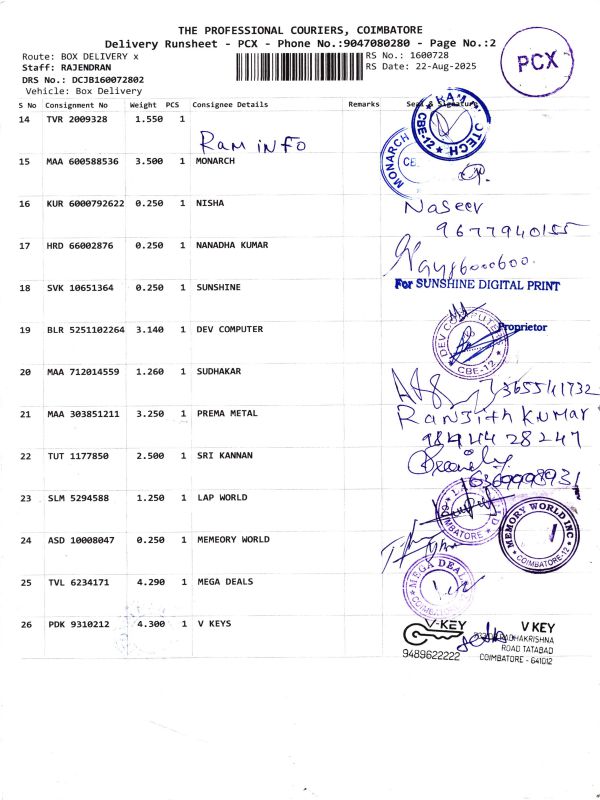 THE PROFESSIONAL COURIERS, COIMBATORE
Delivery Runsheet - PCX - Phone No.:9047080280 - Page No.:2
Route: BOX DELIVERY x
RS No.: 1600728
Staff: RAJENDRAN
RS Date: 22-Aug-2025
DRS No.: DCJB160072802
Vehicle: Box Delivery
PCX
S No Consignment No Weight PCS Consignee Details Remarks Seal & Signature
14 TVR 2009328 1.550 1
Ram INFO
CBE-12
15 MAA 600588536 3.500 1 MONARCH
MONARCH
16 KUR 6000792622 0.250 1 NISHA
Naseer
9677940155
17 HRD 66002876 0.250 1 NANADHA KUMAR
18 SVK 10651364 0.250 1 SUNSHINE
For SUNSHINE DIGITAL PRINT
Proprietor
19 BLR 5251102264 3.140 1 DEV COMPUTER
CBE-12
20 MAA 712014559 1.260 1 SUDHAKAR
7365541732
21 MAA 303851211 3.250 1 PREMA METAL
Ranjith Kumar
22 TUT 1177850 2.500 1 SRI KANNAN
23 SLM 5294588 1.250 1 LAP WORLD
24 ASD 10008047 0.250 1 MEMEORY WORLD
MEMORY WORLD INC
COIMBATORE-12
25 TVL 6234171 4.290 1 MEGA DEALS
MEGA DEALS
26 PDK 9310212 4.300 1 V KEYS
V-KEY
9489622222
V KEY
ROAD TATABAD
COIMBATORE - 641012